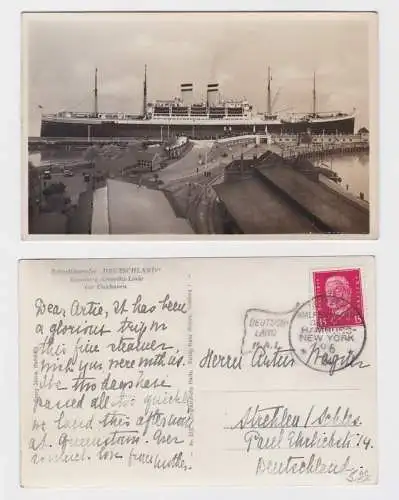 Schnelldampfer "DEUTSCHLAND"
Hamburg-Amerika Linie
vor Cuxhaven
Dear Artie, It has been
a glorious trip on
this fine steamer,
wish you were with us.
The days have
passed all too quickly
we land this afternoon
at Queenstown.
love from mother.
DEUTSCH-
LAND
HAMBURG-
NEW YORK
Herrn Artur
Strehlen/Schles.
Paul Ehrlichstr. 14.
Deutschland.